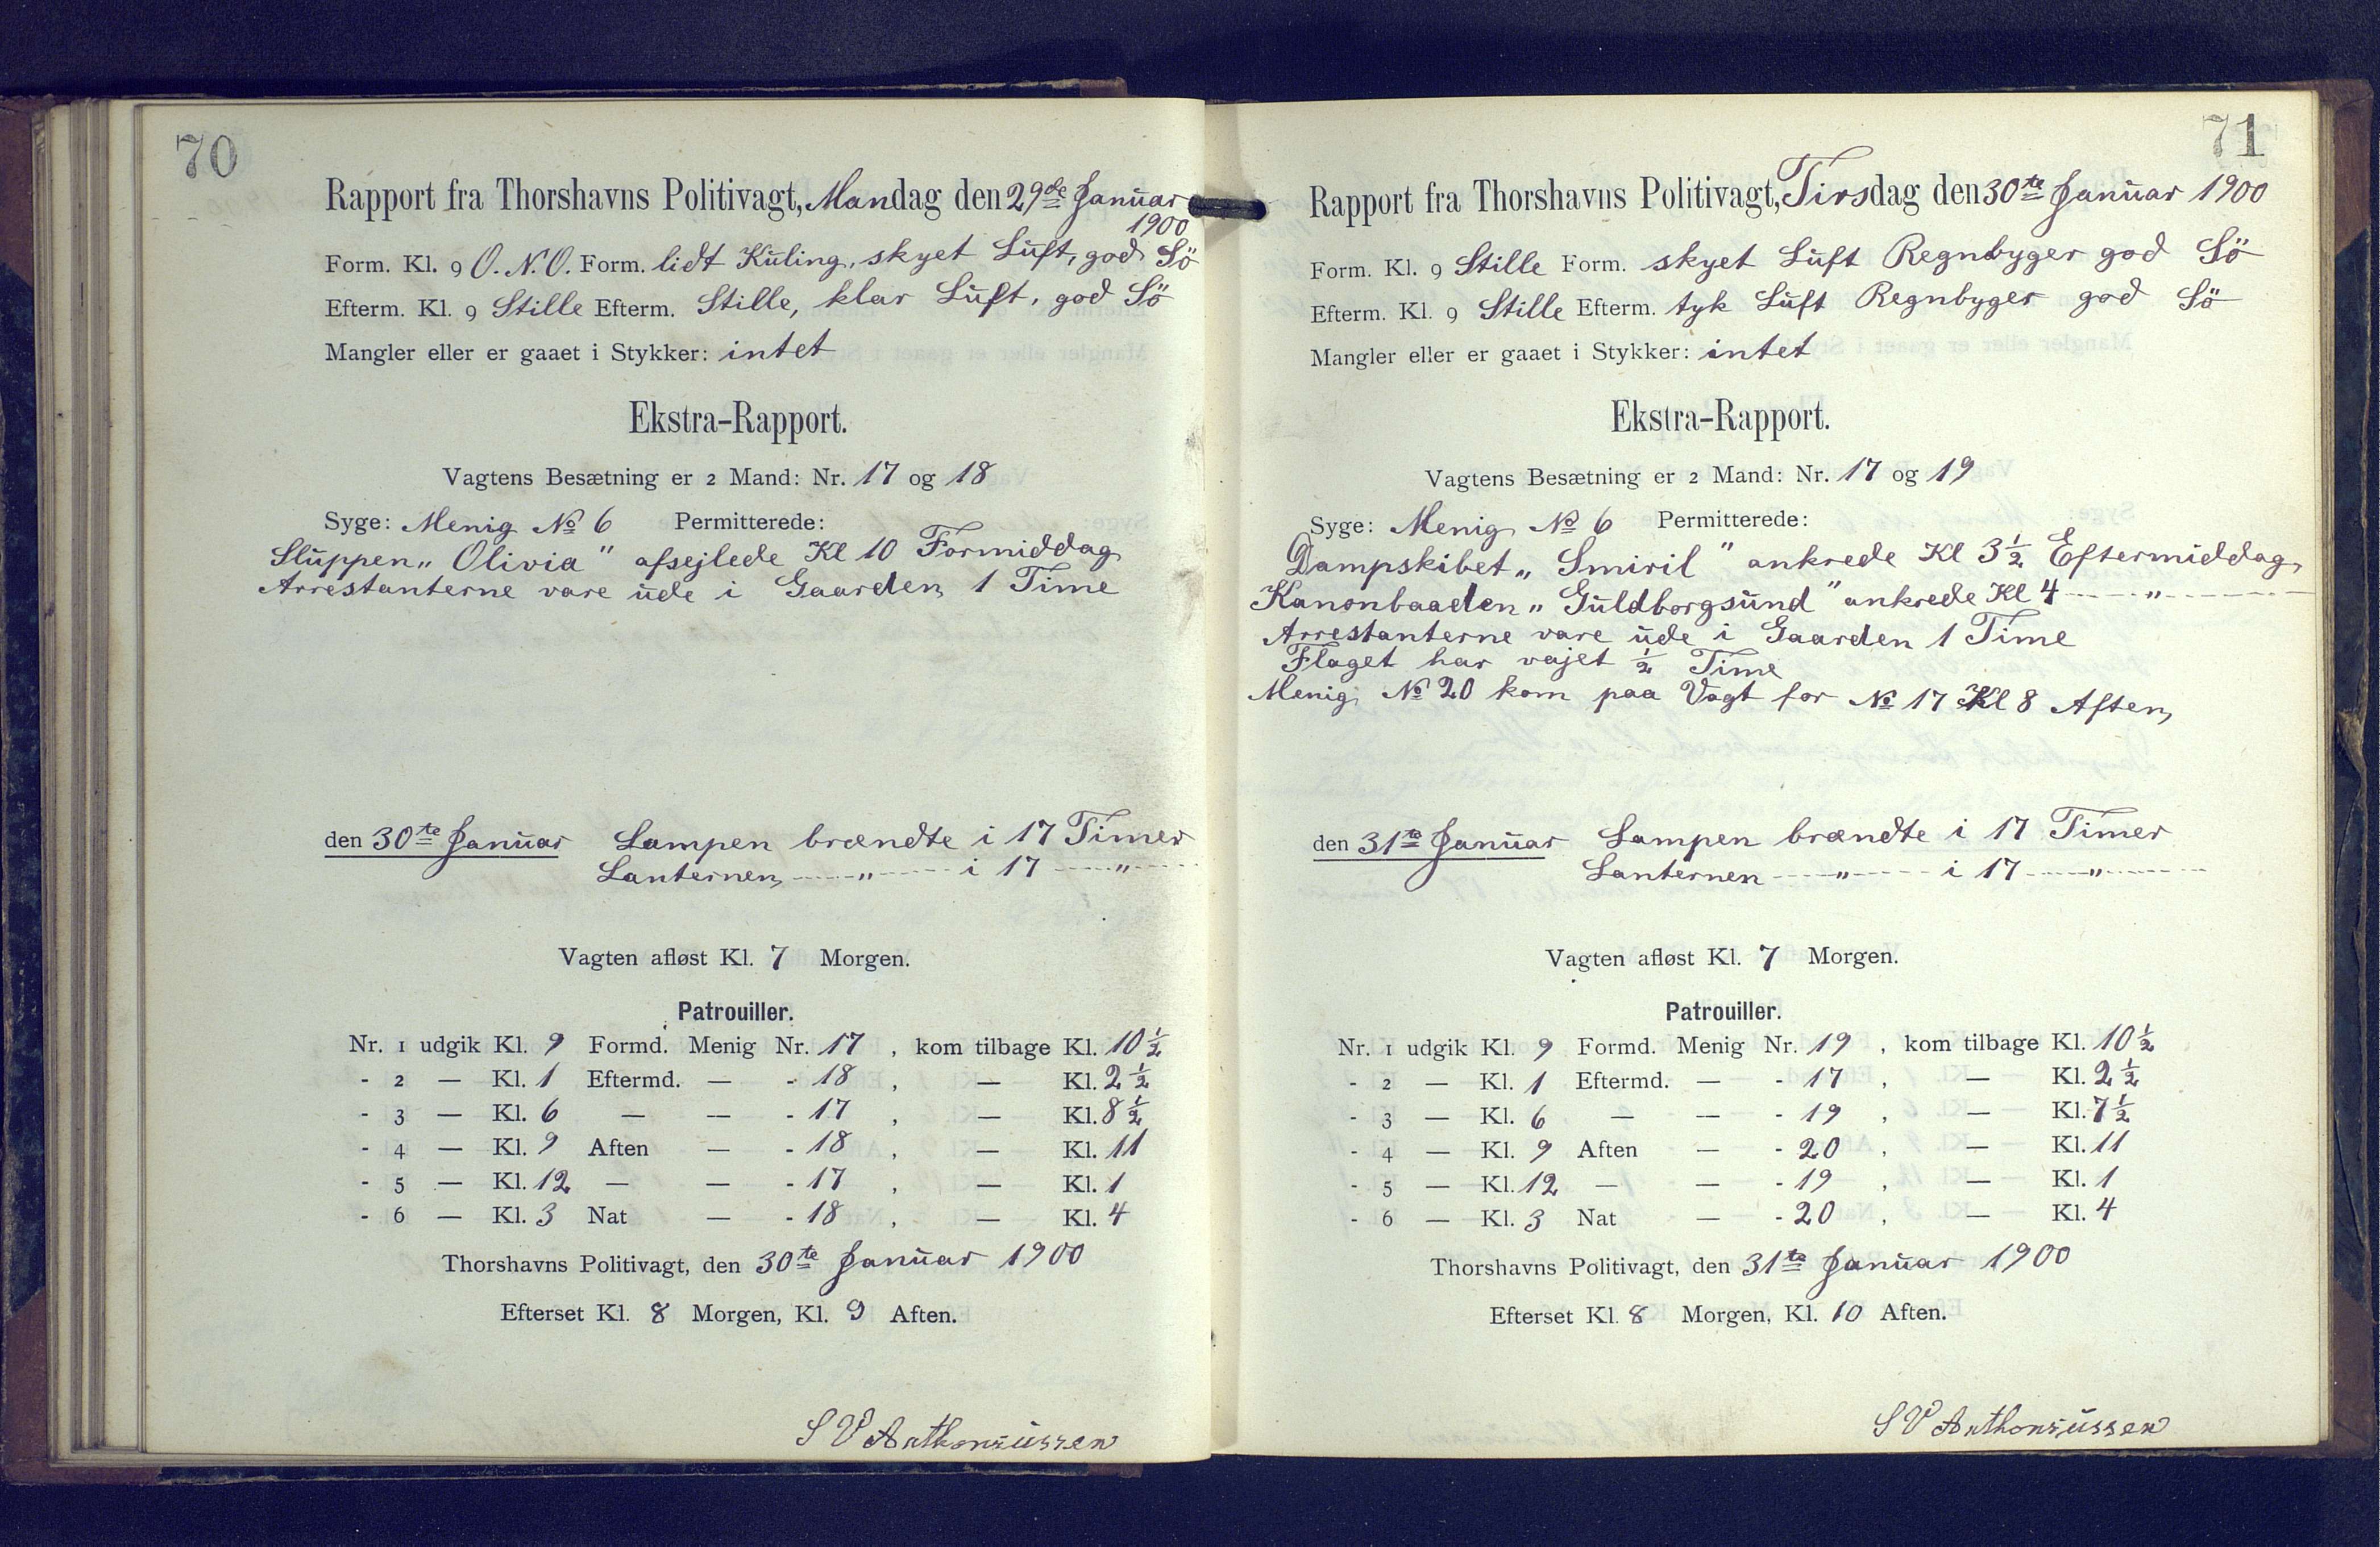 70
Rapport fra Thorshavns Politivagt, Mandag den 29de Januar
1900
Form. Kl. 9 O.N.O. Form. lidt Kuling, skyet Luft, god Sö
Efterm. Kl. 9 Stille Efterm. Stille, klar Luft, god Sö
Mangler eller er gaaet i Stykker: intet
Ekstra-Rapport.
Vagtens Besætning er 2 Mand: Nr. 17 og 18
Syge: Menig No 6 Permitterede:
Sluppen „Olivia" afsejlede Kl 10 Formiddag
Arrestanterne vare ude i Gaarden 1 Time
den 30te Januar Lampen brændte i 17 Timer
Lanternen — " — i 17 — " —
Vagten afløst Kl. 7 Morgen.
Patrouiller.
Nr. 1 udgik Kl. 9 Formd. Menig Nr. 17 , kom tilbage Kl. 10 1/2
- 2 — Kl. 1 Eftermd. — - 18 , — Kl. 2 1/2
- 3 — Kl. 6 — — - 17 , — Kl. 8 1/2
- 4 — Kl. 9 Aften — - 18 , — Kl. 11
- 5 — Kl. 12 — — - 17 , — Kl. 1
- 6 — Kl. 3 Nat — - 18 , — Kl. 4
Thorshavns Politivagt, den 30te Januar 1900
Efterset Kl. 8 Morgen, Kl. 9 Aften.
S V Anthoniussen
71
Rapport fra Thorshavns Politivagt, Tirsdag den 30te Januar 1900
Form. Kl. 9 Stille Form. skyet Luft Regnbyger god Sö
Efterm. Kl. 9 Stille Efterm. tyk Luft Regnbyger god Sö
Mangler eller er gaaet i Stykker: intet
Ekstra-Rapport.
Vagtens Besætning er 2 Mand: Nr. 17 og 19
Syge: Menig No 6 Permitterede:
Dampskibet „Smiril" ankrede Kl 3 1/2 Eftermiddag
Kanonbaaden „Guldborgsund" ankrede Kl 4 — " —
Arrestanterne vare ude i Gaarden 1 Time
Flaget har vajet 1/2 Time
Menig No 20 kom paa Vagt for No 17 Kl 8 Aften
den 31te Januar Lampen brændte i 17 Timer
Lanternen — " — i 17 — " —
Vagten afløst Kl. 7 Morgen.
Patrouiller.
Nr. 1 udgik Kl. 9 Formd. Menig Nr. 19 , kom tilbage Kl. 10 1/2
- 2 — Kl. 1 Eftermd. — - 17 , — Kl. 2 1/2
- 3 — Kl. 6 — — - 19 , — Kl. 7 1/2
- 4 — Kl. 9 Aften — - 20 , — Kl. 11
- 5 — Kl. 12 — — - 19 , — Kl. 1
- 6 — Kl. 3 Nat — - 20 , — Kl. 4
Thorshavns Politivagt, den 31te Januar 1900
Efterset Kl. 8 Morgen, Kl. 10 Aften.
S V Anthoniussen